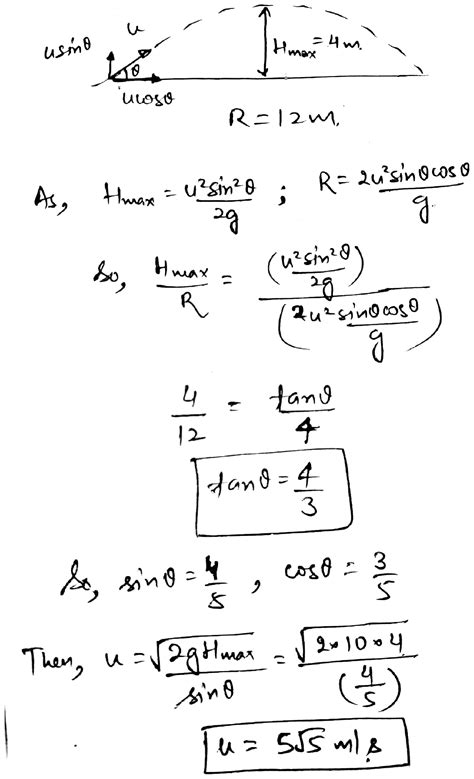 u
usinθ
Hmax = 4m.
θ
ucosθ
R = 12m.
As, Hmax = u²sin²θ/2g ; R = 2u²sinθcosθ/g.
So, Hmax/R = (u²sin²θ/2g)/(2u²sinθcosθ/g)
4/12 = tanθ/4
tanθ = 4/3
So, sinθ = 4/5, cosθ = 3/5
Then, u = √2gHmax/sinθ = √2×10×4/(4/5)
u = 5√5 m/s